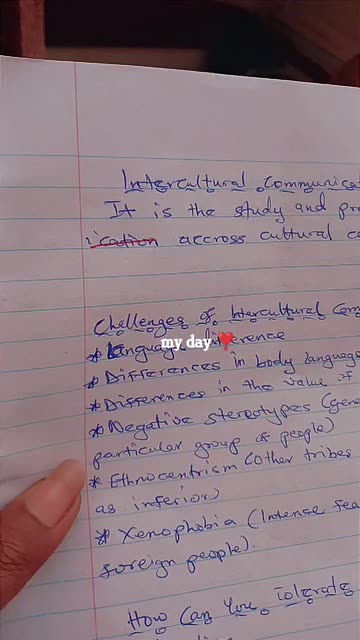 Intercultural Communica
It is the study and pr
ication accross cultural c
Challenges of Intercultural Com
* Language difference
my day❤️
* Differences in body language
* Differences in the value of
* Negative sterotypes (gene
particular group of people)
* Ethnocentrism (Other tribes
as inferior)
* Xenophobia (Intense fea
foreign people).
How Can You Tolerate